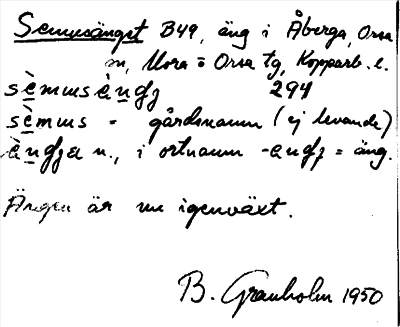 Semusänget B49, äng i Åberga, Orsa
n, Mora o Orsa tg, Kopparb. l.
sèmusàngʒ 294
sèmus - gårdsnamn (ej levande)
àngʒa n., i ortnamn -angʒ = äng.
Ängen är nu igenväxt.
B. Granholm 1950